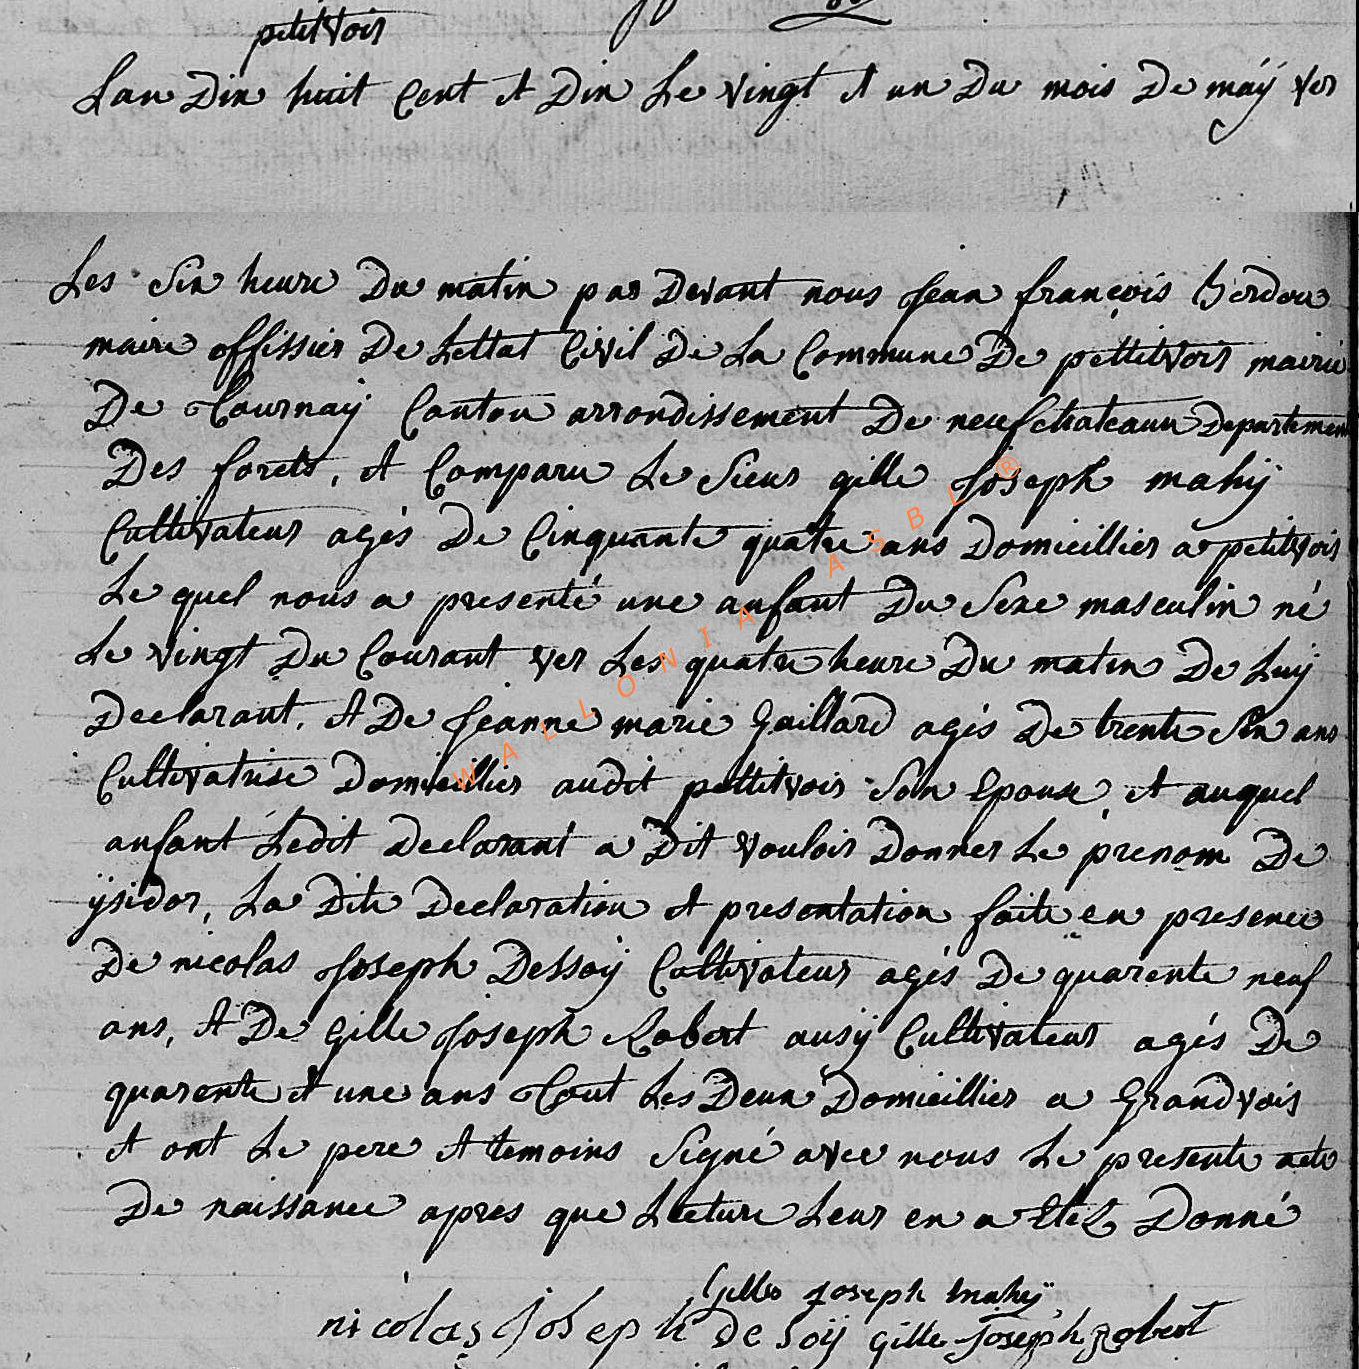 petitvoir
Lan Dix huit Cent et Dix Le vingt et un Du mois De maÿ ver
Les Six heure Du matin par Devant nous Jean françois
maire offissier De Lettat Civil De La Commune De pettitvoir mairie
De Tournaÿ Canton arrondissement De neufchateaux Departement
Des forets, et Comparu Le Sieur gille Joseph mahÿ
Cultivateur agés De Cinquante quatre ans Domicillier a petitvoir
Le quel nous a presenté une anfant Du Sexe masculin né
Le vingt Du Courant ver Les quatre heure Du matin De Luÿ
Declarant, et De Jeanne marie Gaillard agés De trente Six ans
Cultivatrise Domicillier audit pettitvoir Son Epouse, et auquel
anfant Ledit Declarant a Dit vouloir Donner Le prenom De
ÿsidor, La Dite Declaration et presentation faite en presence
De nicolas Joseph Dessoÿ Cultivateur agés De quarente neuf
ans, et De Gille Joseph Robert ausÿ Cultivateur agés De
quarente et une ans Tout Les Deux Domicillier a Grandvoir
et ont Le pere et temoins Signé avec nous Le presente acte
De naissance apres que Lecture Leur en a Donné
Gilles Joseph mahÿ
nicolas Joseph De Soÿ gille Joseph robert
WALLONIA ASBL ®